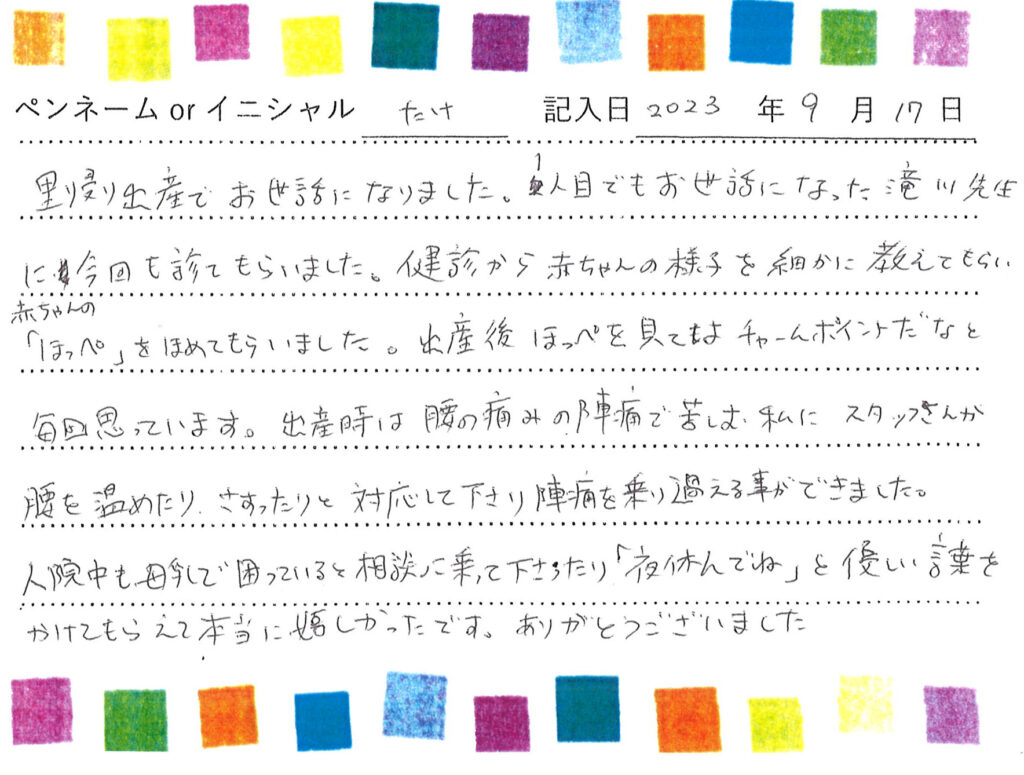 ペンネーム or イニシャル たけ 記入日 2023 年 9 月 17 日
里帰り出産でお世話になりました。1人目でもお世話になった滝川先生
に今回も診てもらいました。健診から赤ちゃんの様子を細かに教えてもらい
赤ちゃんの
「ほっぺ」をほめてもらいました。出産後ほっぺを見てもチャームポイントだなと
毎回思っています。出産時は腰の痛みの陣痛で苦しむ私にスタッフさんが
腰を温めたり、さすったりと対応して下さり陣痛を乗り越える事ができました。
入院中も母乳で困っていると相談に乗って下さったり「夜休んでね」と優しい言葉を
かけてもらえて本当に嬉しかったです。ありがとうございました